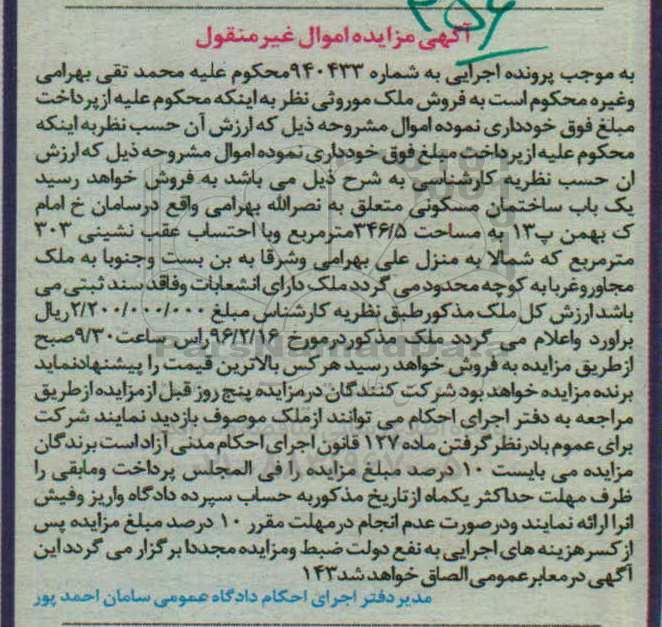 ۳۵۶
آگهی مزایده اموال غیر منقول
به موجب پرونده اجرایی به شماره ۹۴۰۴۳۳محکوم علیه محمد تقی بهرامی
وغیره محکوم است به فروش ملک موروثی نظر به اینکه محکوم علیه از پرداخت
مبلغ فوق خودداری نموده اموال مشروحه ذیل که ارزش آن حسب نظربه اینکه
محکوم علیه از پرداخت مبلغ فوق خودداری نموده اموال مشروحه ذیل که ارزش
ان حسب نظریه کارشناسی به شرح ذیل می باشد به فروش خواهد رسید
یک باب ساختمان مسکونی متعلق به نصرالله بهرامی واقع درسامان خ امام
ک بهمن پ۱۳ به مساحت ۳۴۶/۵مترمربع وبا احتساب عقب نشینی ۳۰۳
مترمربع که شمالا به منزل علی بهرامی وشرقا به بن بست وجنوبا به ملک
مجاوروغربا به کوچه محدود می گردد ملک دارای انشعابات وفاقد سند ثبتی می
باشد ارزش کل ملک مذکورطبق نظریه کارشناس مبلغ ۲/۲۰۰/۰۰۰/۰۰۰ریال
براورد واعلام می گردد ملک مذکوردرمورخ ۹۶/۲/۱۶راس ساعت۹/۳۰صبح
ازطریق مزایده به فروش خواهد رسید هرکس بالاترین قیمت را پیشنهادنماید
برنده مزایده خواهد بود شرکت کنندگان درمزایده پنج روز قبل ازمزایده ازطریق
مراجعه به دفتر اجرای احکام می توانند ازملک موصوف بازدید نمایند شرکت
برای عموم بادرنظر گرفتن ماده ۱۲۷ قانون اجرای احکام مدنی آزاد است برندگان
مزایده می بایست ۱۰ درصد مبلغ مزایده را فی المجلس پرداخت ومابقی را
ظرف مهلت حداکثر یکماه ازتاریخ مذکوربه حساب سپرده دادگاه واریز وفیش
انرا ارائه نمایند ودرصورت عدم انجام درمهلت مقرر ۱۰ درصد مبلغ مزایده پس
از کسر هزینه های اجرایی به نفع دولت ضبط ومزایده مجددا برگزار می گردد این
آگهی درمعابرعمومی الصاق خواهد شد۱۴۳
مدیر دفتر اجرای احکام دادگاه عمومی سامان احمد پور